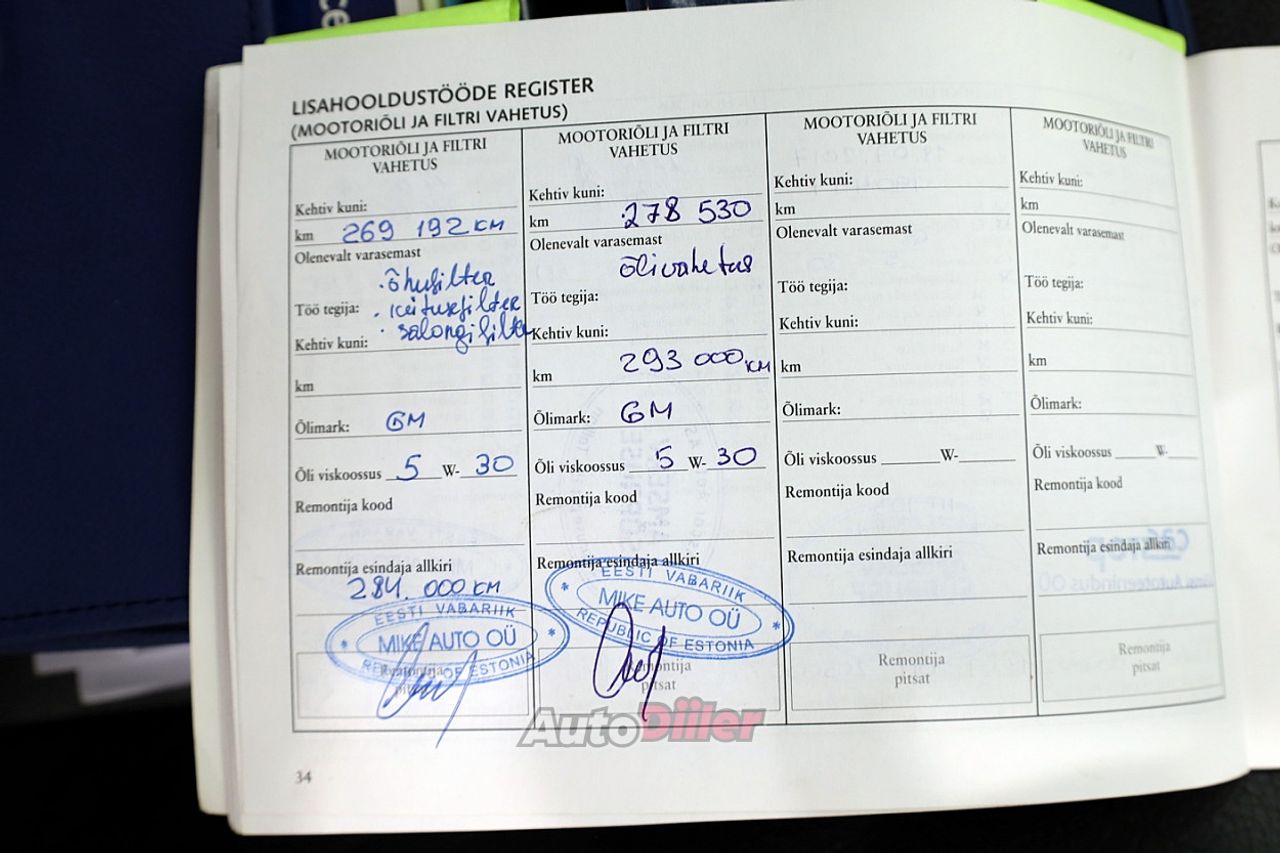 LISAHOOLDUSTÖÖDE REGISTER
(MOOTORIÕLI JA FILTRI VAHETUS)
MOOTORIÕLI JA FILTRI
VAHETUS
Kehtiv kuni:
km 269 192 KM
Olenevalt varasemast
· õhufilter
Töö tegija: · kütusefilter
· salongifilter
Kehtiv kuni:
km
Õlimark: GM
Õli viskoossus 5 W- 30
Remontija kood
Remontija esindaja allkiri
284. 000 KM
EESTI VABARIIK
* MIKE AUTO OÜ *
REPUBLIC OF ESTONIA
Remontija
pitsat
MOOTORIÕLI JA FILTRI
VAHETUS
Kehtiv kuni:
km 278 530
Olenevalt varasemast
õlivahetus
Töö tegija:
Kehtiv kuni:
km 293 000 KM
Õlimark: GM
Õli viskoossus 5 W- 30
Remontija kood
Remontija esindaja allkiri
EESTI VABARIIK
* MIKE AUTO OÜ *
REPUBLIC OF ESTONIA
Remontija
pitsat
MOOTORIÕLI JA FILTRI
VAHETUS
Kehtiv kuni:
km
Olenevalt varasemast
Töö tegija:
Kehtiv kuni:
km
Õlimark:
Õli viskoossus ______W-______
Remontija kood
Remontija esindaja allkiri
Remontija
pitsat
MOOTORIÕLI JA FILTRI
VAHETUS
Kehtiv kuni:
km
Olenevalt varasemast
Töö tegija:
Kehtiv kuni:
km
Õlimark:
Õli viskoossus ______W-______
Remontija kood
Remontija esindaja allkiri
Remontija
pitsat
AutoDiiler
34